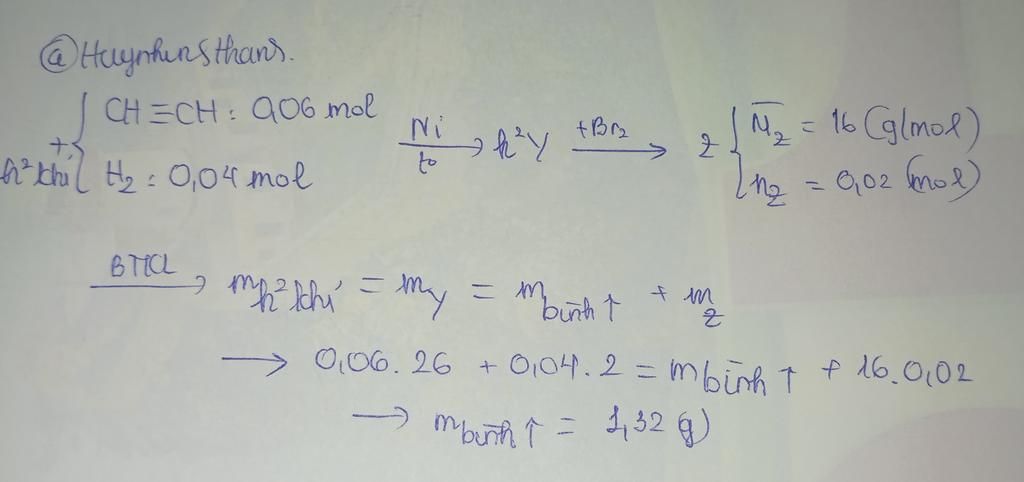 @Huynhensthans.
+, h² khí { CH≡CH: 0,06 mol
H₂: 0,04 mol
Ni t° → h²Y +Br₂ → Z { M̅_Z = 16 (g/mol)
n_Z = 0,02 (mol)
BTKL → m_h² khí = m_Y = m_bình ↑ + m_Z
→ 0,06.26 + 0,04.2 = m_bình ↑ + 16.0,02
→ m_bình ↑ = 1,32 (g)